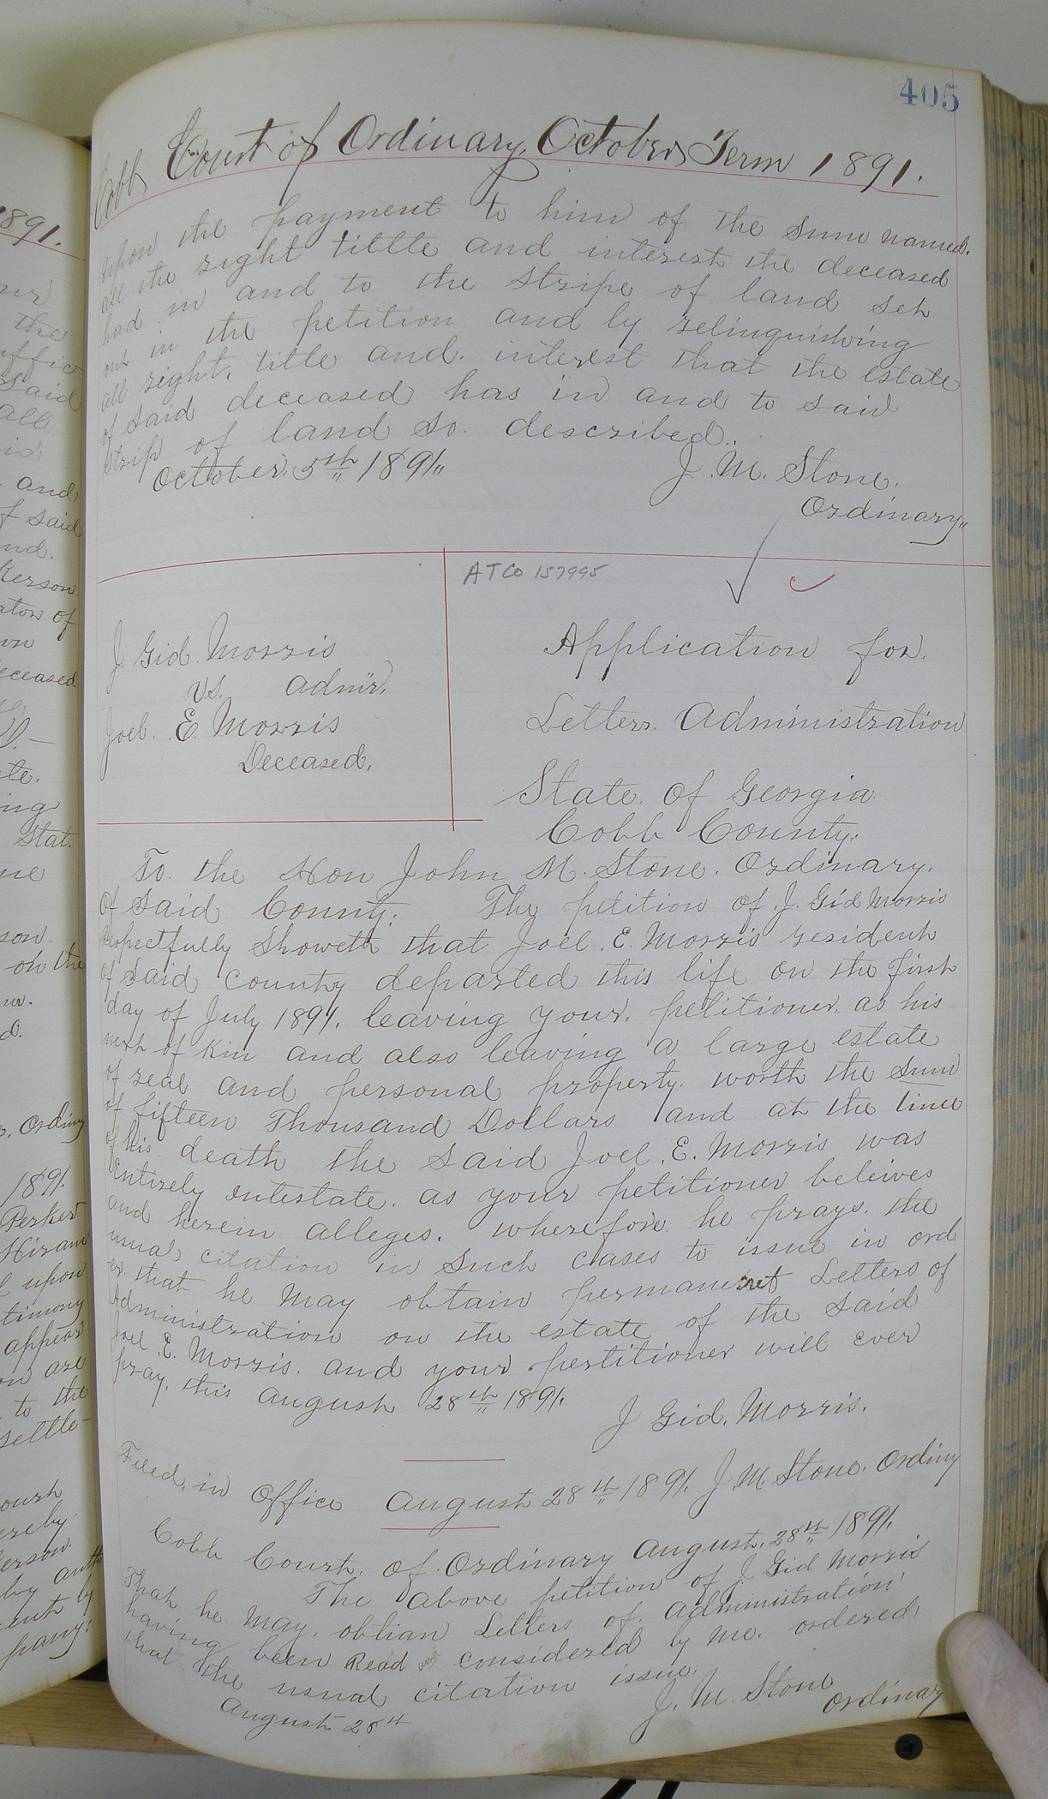 405
Cobb Court of Ordinary, October Term 1891.
upon the payment to him of the sum named.
all the right tittle and interest the deceased
had in and to the stripe of land set
out in the petition and by relinquishing
all right, title and interest that the estate
of said deceased has in and to said
strip of land so described.
October 5th 1891.
J. M. Stone.
Ordinary
ATCo 157995
J. Gid. Morris
vs. Admr.
Joel E. Morris
Deceased.
Application for
Letters Administration
State of Georgia
Cobb County.
To the Hon John M. Stone. Ordinary.
of Said County. The petition of J. Gid Morris
Respectfully Showeth that Joel. E. Morris resident
of Said County departed this life on the first
day of July 1891. leaving your petitioner as his
next of kin and also leaving a large estate
of real and personal property worth the Sum
of fifteen Thousand Dollars and at the time
of his death the said Joel. E. Morris was
Entirely intestate. as your petitioner beleives
and herein alleges. wherefore he prays the
usual citation in such cases to issue in ord
er that he May obtain permanent Letters of
Administration on the estate of the said
Joel E. Morris. and your pertitioner will ever
pray. this August 28th 1891.
J Gid. Morris.
Filed in Office August 28th 1891. J M Stone. Ordiny
Cobb Court of Ordinary August 28th 1891.
The above petition of J. Gid Morris
That he May obtian Letters of Administration
having been Read and considered by me. ordered
that the usual citation issue.
August 28th
J. M. Stone
Ordinary
1891.
the
said
and
of said
deceased
to the
settle-
1891
Hiram
upon
timony
appear
on are